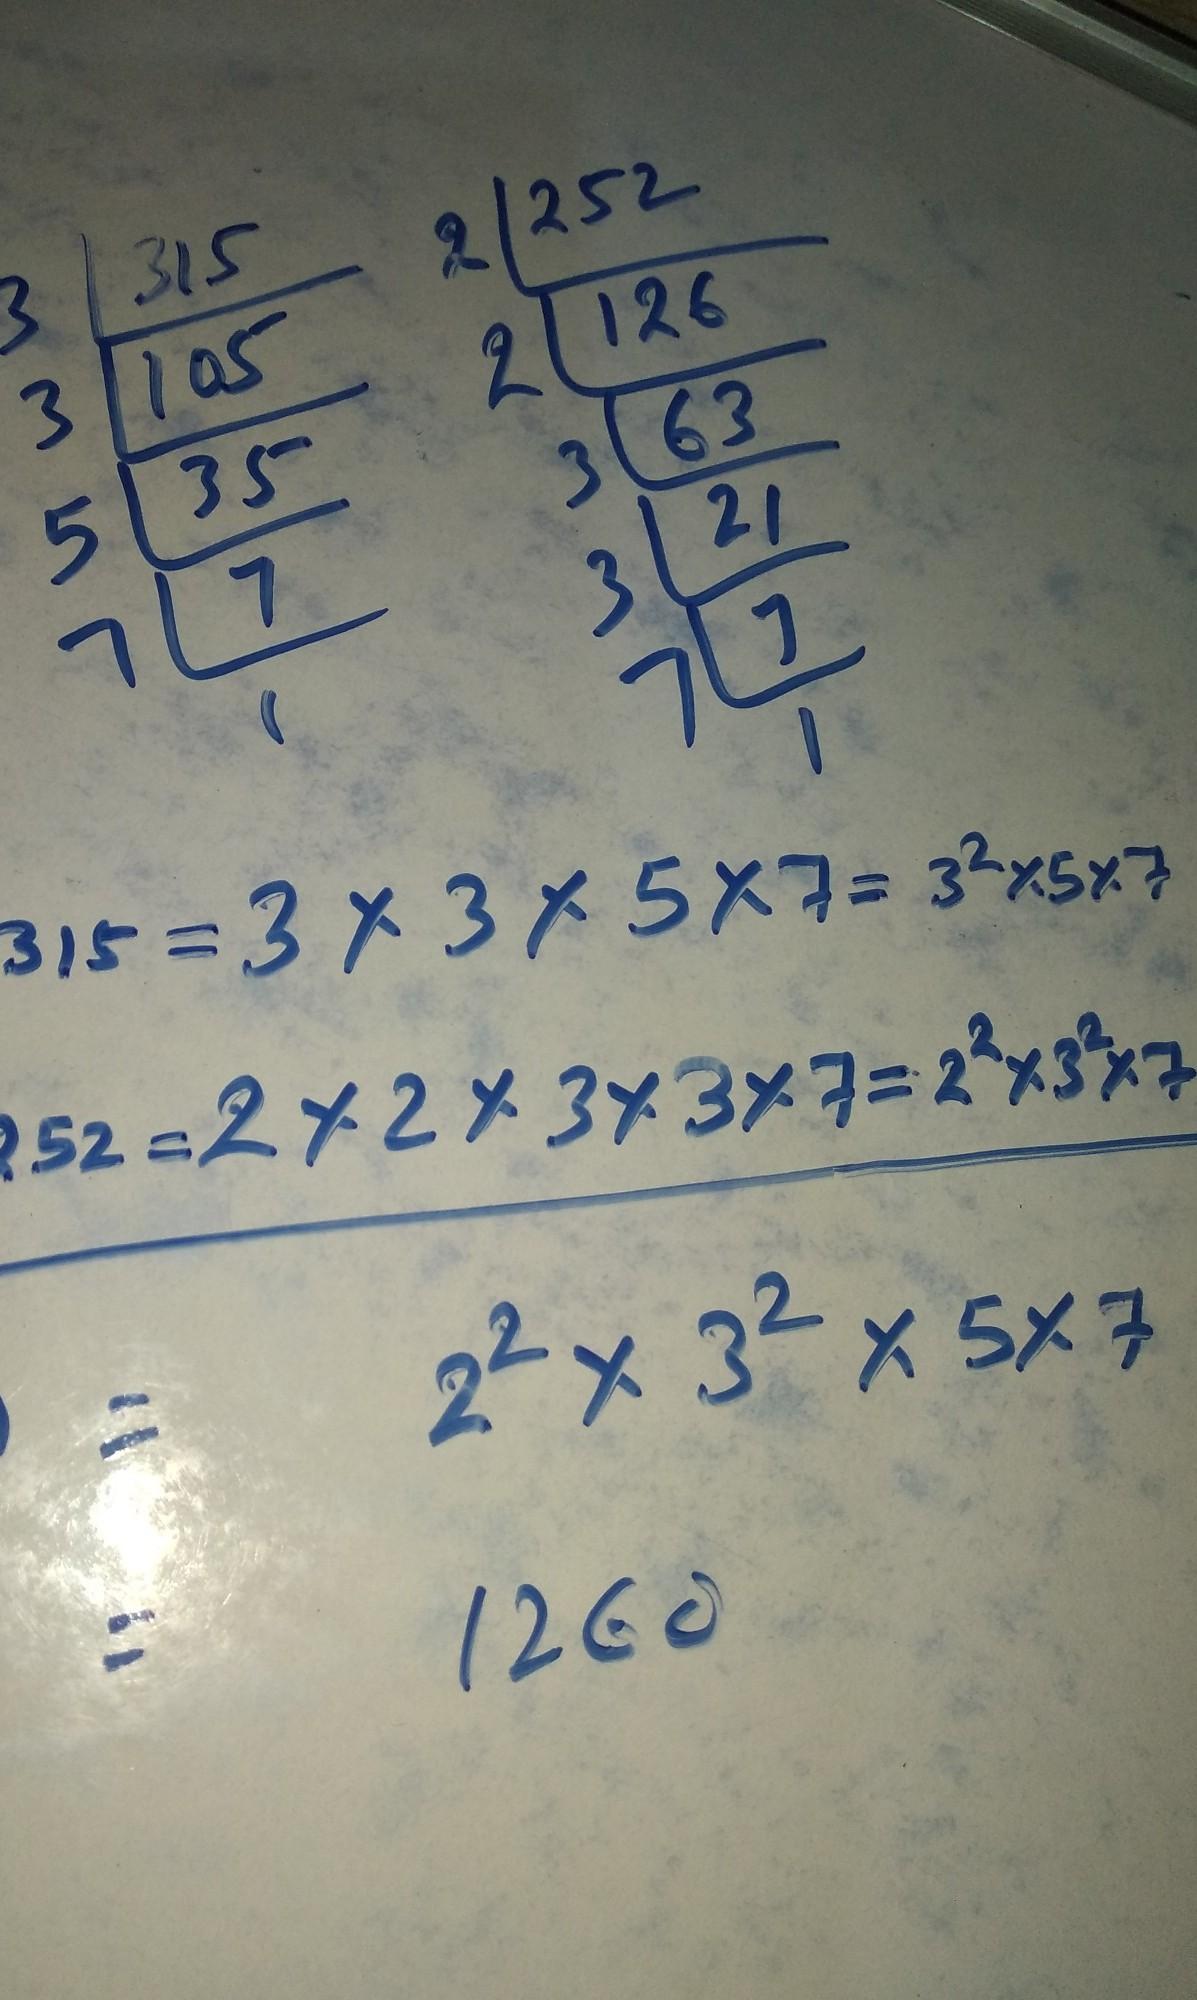 3 | 315
3 | 105
5 | 35
7 | 7
1
2 | 252
2 | 126
3 | 63
3 | 21
7 | 7
1
315 = 3 × 3 × 5 × 7 = 3² × 5 × 7
252 = 2 × 2 × 3 × 3 × 7 = 2² × 3² × 7
= 2² × 3² × 5 × 7
= 1260